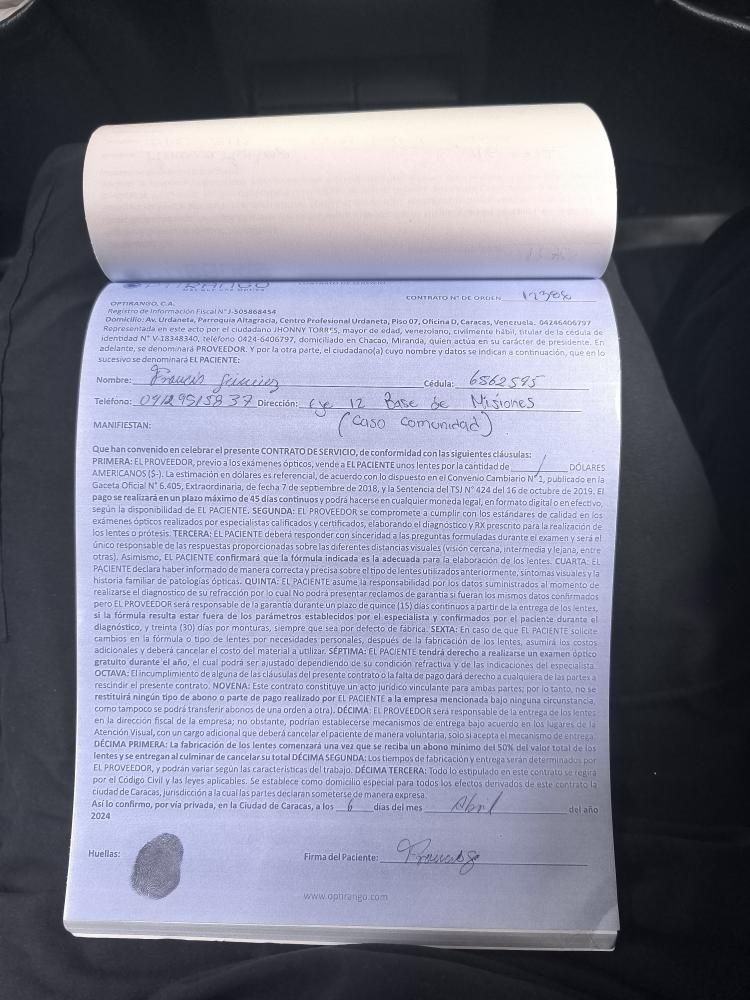 OPTIRANGO
CONTRATO DE SERVICIO
CONTRATO N° DE ORDEN 12386
OPTIRANGO, C.A.
Registro de Información Fiscal N° J-505868454
Domicilio: Av. Urdaneta, Parroquia Altagracia, Centro Profesional Urdaneta, Piso 07, Oficina D, Caracas, Venezuela. 04246406797
Representada en este acto por el ciudadano JHONNY TORRES, mayor de edad, venezolano, civilmente hábil, titular de la cédula de
identidad N° V-18348340, teléfono 0424-6406797, domiciliado en Chacao, Miranda, quien actúa en su carácter de presidente. En
adelante, se denominará PROVEEDOR. Y por la otra parte, el ciudadano(a) cuyo nombre y datos se indican a continuación, que en lo
sucesivo se denominará EL PACIENTE:
Nombre: Francis Cédula: 6562595
Teléfono: 04129515837 Dirección: eje 12 Base de Misiones
MANIFIESTAN: (caso comunidad)
Que han convenido en celebrar el presente CONTRATO DE SERVICIO, de conformidad con las siguientes cláusulas:
PRIMERA: EL PROVEEDOR, previo a los exámenes ópticos, vende a EL PACIENTE unos lentes por la cantidad de / DÓLARES
AMERICANOS ($-). La estimación en dólares es referencial, de acuerdo con lo dispuesto en el Convenio Cambiario N°1, publicado en la
Gaceta Oficial N° 6.405, Extraordinaria, de fecha 7 de septiembre de 2018, y la Sentencia del TSJ N° 424 del 16 de octubre de 2019. El
pago se realizará en un plazo máximo de 45 días continuos y podrá hacerse en cualquier moneda legal, en formato digital o en efectivo,
según la disponibilidad de EL PACIENTE. SEGUNDA: EL PROVEEDOR se compromete a cumplir con los estándares de calidad en los
exámenes ópticos realizados por especialistas calificados y certificados, elaborando el diagnóstico y RX prescrito para la realización de
los lentes o prótesis. TERCERA: EL PACIENTE deberá responder con sinceridad a las preguntas formuladas durante el examen y será el
único responsable de las respuestas proporcionadas sobre las diferentes distancias visuales (visión cercana, intermedia y lejana, entre
otras). Asimismo, EL PACIENTE confirmará que la fórmula indicada es la adecuada para la elaboración de los lentes. CUARTA: EL
PACIENTE declara haber informado de manera correcta y precisa sobre el tipo de lentes utilizados anteriormente, síntomas visuales y la
historia familiar de patologías ópticas. QUINTA: EL PACIENTE asume la responsabilidad por los datos suministrados al momento de
realizarse el diagnostico de su refracción por lo cual No podrá presentar reclamos de garantía si fueran los mismos datos confirmados
pero EL PROVEEDOR será responsable de la garantía durante un plazo de quince (15) días continuos a partir de la entrega de los lentes,
si la fórmula resulta estar fuera de los parámetros establecidos por el especialista y confirmados por el paciente durante el
diagnóstico, y treinta (30) días por monturas, siempre que sea por defecto de fábrica. SEXTA: En caso de que EL PACIENTE solicite
cambios en la fórmula o tipo de lentes por necesidades personales, después de la fabricación de los lentes, asumirá los costos
adicionales y deberá cancelar el costo del material a utilizar. SÉPTIMA: EL PACIENTE tendrá derecho a realizarse un examen óptico
gratuito durante el año, el cual podrá ser ajustado dependiendo de su condición refractiva y de las indicaciones del especialista.
OCTAVA: El incumplimiento de alguna de las cláusulas del presente contrato o la falta de pago dará derecho a cualquiera de las partes a
rescindir el presente contrato. NOVENA: Este contrato constituye un acto jurídico vinculante para ambas partes; por lo tanto, no se
restituirá ningún tipo de abono o parte de pago realizado por EL PACIENTE a la empresa mencionada bajo ninguna circunstancia,
como tampoco se podrá transferir abonos de una orden a otra). DÉCIMA: EL PROVEEDOR será responsable de la entrega de los lentes
en la dirección fiscal de la empresa; no obstante, podrían establecerse mecanismos de entrega bajo acuerdo en los lugares de la
Atención Visual, con un cargo adicional que deberá cancelar el paciente de manera voluntaria, solo si acepta el mecanismo de entrega.
DÉCIMA PRIMERA: La fabricación de los lentes comenzará una vez que se reciba un abono mínimo del 50% del valor total de los
lentes y se entregan al culminar de cancelar su total DÉCIMA SEGUNDA: Los tiempos de fabricación y entrega serán determinados por
EL PROVEEDOR, y podrán variar según las características del trabajo. DÉCIMA TERCERA: Todo lo estipulado en este contrato se regirá
por el Código Civil y las leyes aplicables. Se establece como domicilio especial para todos los efectos derivados de este contrato la
ciudad de Caracas, jurisdicción a la cual las partes declaran someterse de manera expresa.
Así lo confirmo, por vía privada, en la Ciudad de Caracas, a los 6 días del mes Abril del año
2024
Huellas:
Firma del Paciente:
www.optirango.com